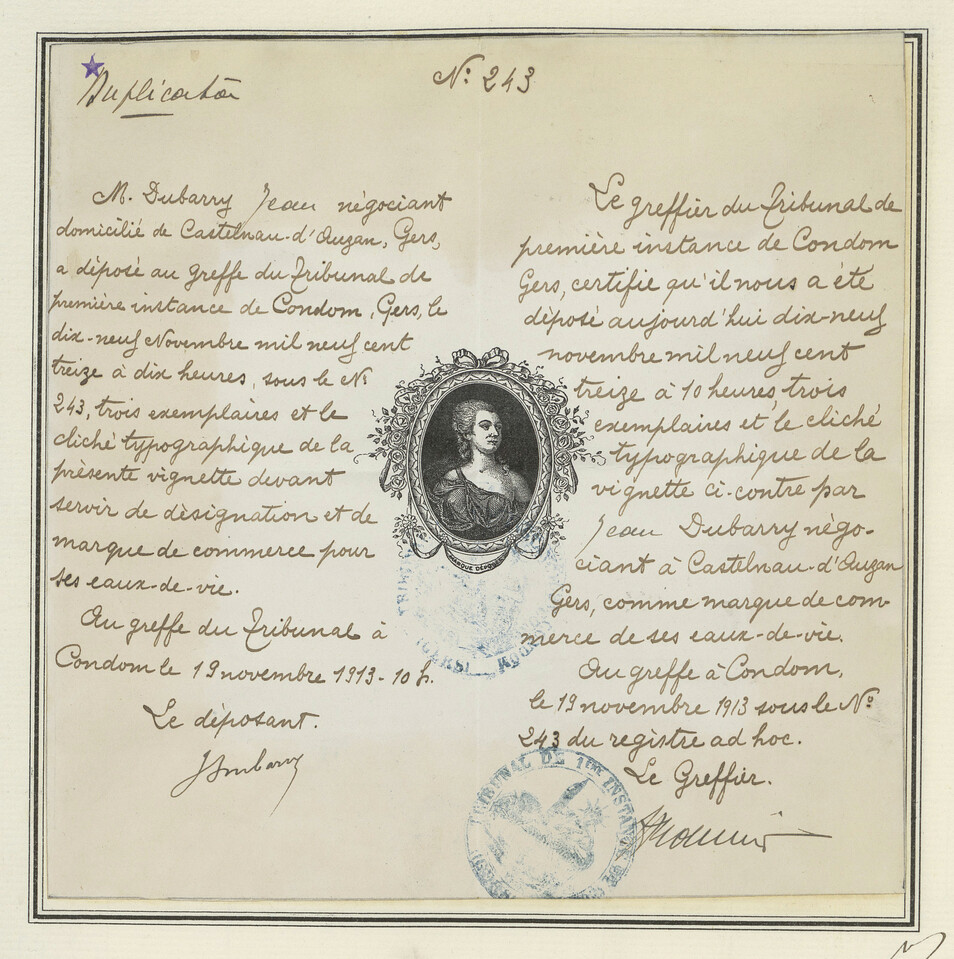 Duplicata
N° 243
M. Dubarry Jean négociant
domicilié de Castelnau-d'Auzan, Gers,
a déposé au greffe du Tribunal de
première instance de Condom, Gers, le
dix-neuf Novembre mil neuf cent
treize à dix heures, sous le N°
243, trois exemplaires et le
cliché typographique de la
présente vignette devant
servir de désignation et de
marque de commerce pour
ses eaux-de-vie.
Au greffe du Tribunal à
Condom le 19 novembre 1913 - 10 h.
Le déposant.
JDubarry
MARQUE DÉPOSÉE
Le greffier du Tribunal de
première instance de Condom
Gers, certifie qu'il nous a été
déposé aujourd'hui dix-neuf
novembre mil neuf cent
treize à 10 heures, trois
exemplaires et le cliché
typographique de la
vignette ci-contre par
Jean Dubarry négo-
ciant à Castelnau-d'Auzan
Gers, comme marque de com-
merce de ses eaux-de-vie.
Au greffe à Condom,
le 19 novembre 1913 sous le N°
243 du registre ad hoc.
Le Greffier.
TRIBUNAL DE 1ère INSTANCE DE